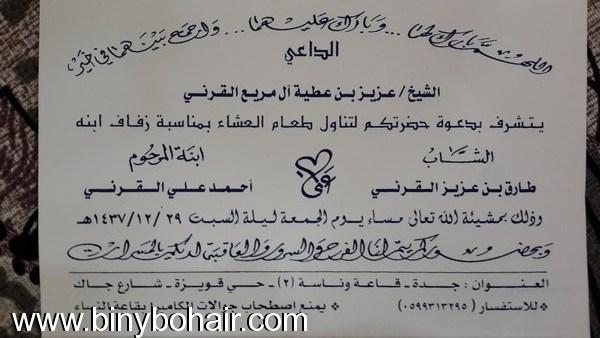 اللهم بارك لهما ... وبارك عليهما ... واجمع بينهما في خير
الداعي
الشيخ / عزيز بن عطية آل مريع القرني
يتشرف بدعوة حضرتكم لتناول طعام العشاء بمناسبة زفاف ابنه
الشاب
ابنة المرحوم
طارق بن عزيز القرني
على
أحمد علي القرني
وذلك بمشيئة الله تعالى مساء يوم الجمعة ليلة السبت ٢٩ /١٢ /١٤٣٧هـ
وبحضوركم يتم لنا الفرح والسرور والعاقبة لديكم بالمسرات
العنوان : جدة - قاعة وناسة (٢) - حي قويزة - شارع جاك
* للاستفسار ( ٠٥٩٩٣١٣٢٩٥ ) * يمنع اصطحاب جوالات الكاميرا بقاعة النساء
www.binybohair.com